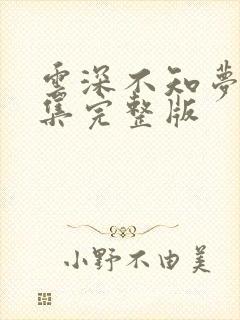 雲深不知夢
集完整版
小野不由美